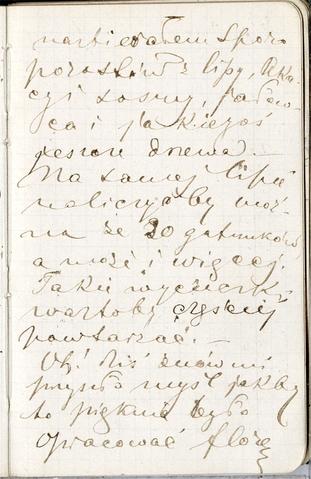 nazbierałem sporo
porostów z lipy, aka-
cyi sosny, jałow-
ca i jakiegoś
jeszcze drzewa. –
Na samej lipie
naliczyć by moż-
na ze 20 gatunków
a może i więcej.
Takie wycieczki
wartoby częściej
powtarzać. –
Oh! dziś znów mi
przyszło myśl jakby
to pięknie było
opracować florę